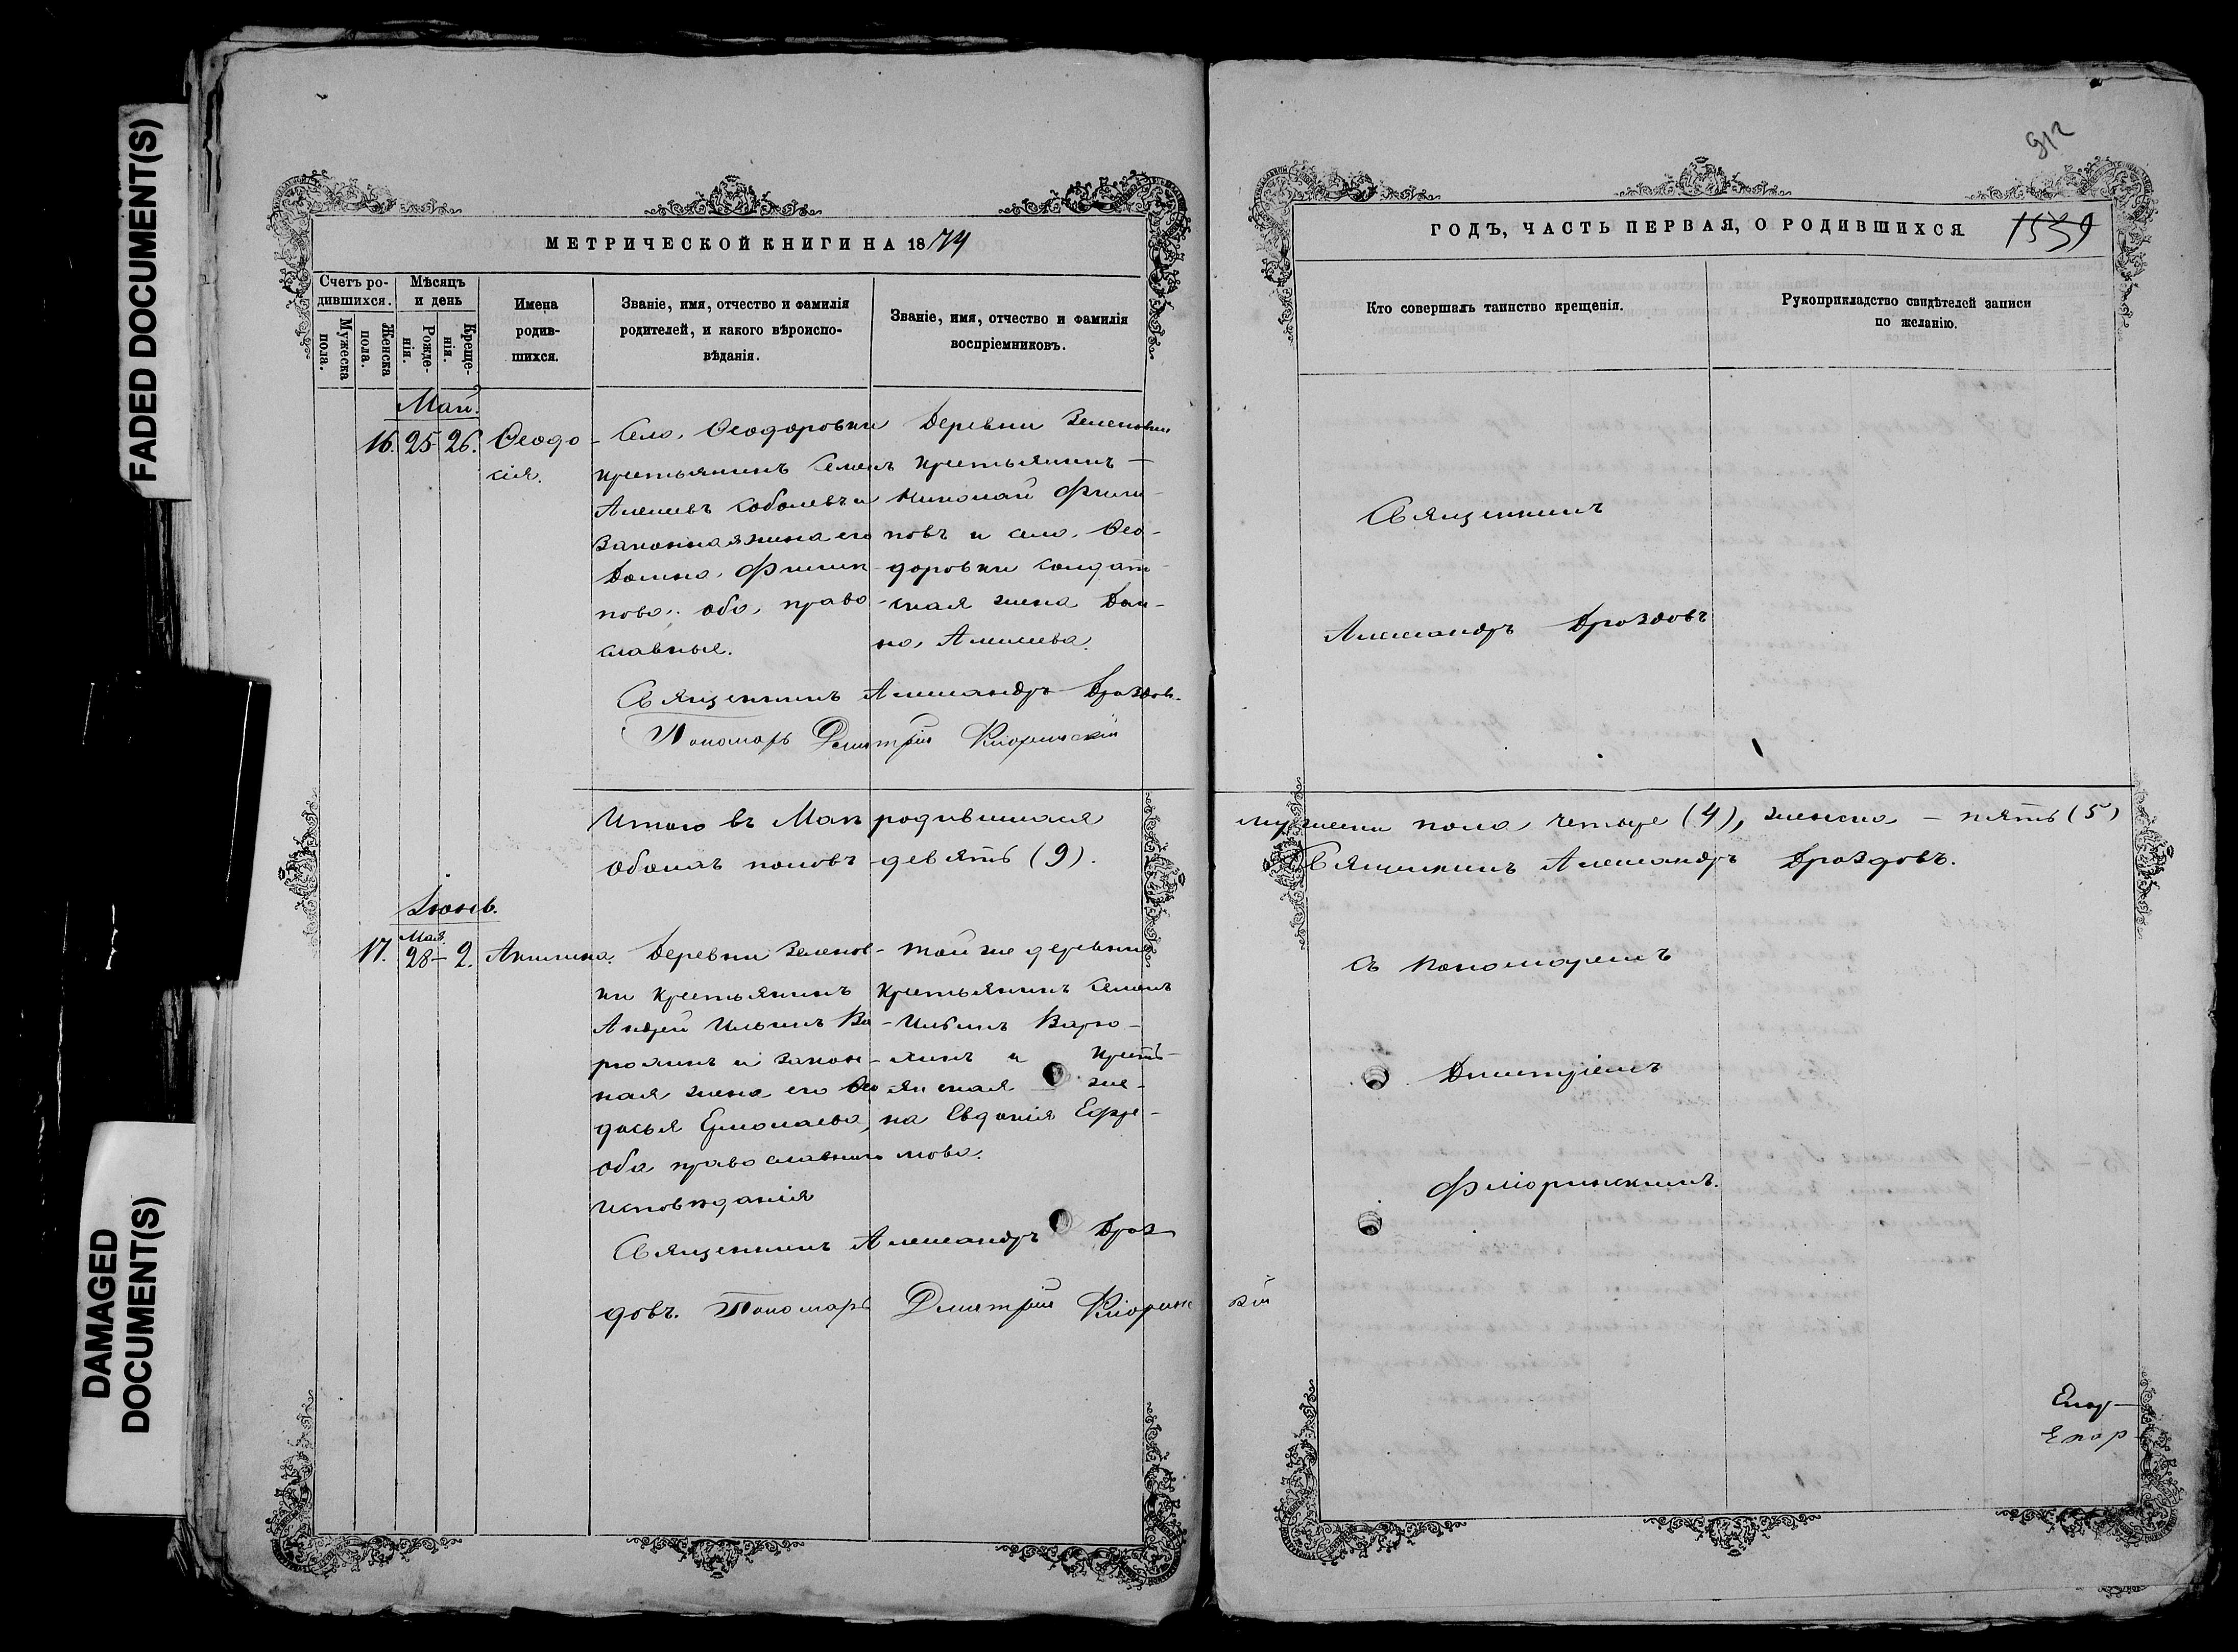 FADED DOCUMENT(S)
DAMAGED
DOCUMENT(S)
МЕТРИЧЕСКОЙ КНИГИ НА 1874
Счетъ ро-
дившихся.
Мужеска
пола.
Женска
пола.
Мѣсяцъ
и день
Рожде-
нія.
Креще-
нія.
Имена
родив-
шихся.
Званіе, имя, отчество и фамилія
родителей, и какого вѣроиспо-
вѣданія.
Званіе, имя, отчество и фамилія
воспріемниковъ.
Май.
16. 25 26. Ѳеодо-
сія.
Села Ѳеодоровки
крестьянинъ Семенъ
Алексевъ Соболевъ и
законная жена его
Домна Филип-
пова. оба право-
славные.
Деревни Зеленовки
крестьянинъ
Николай Филип-
повъ и села Ѳео-
доровки солдат-
ская жена Дом-
на Алексева.
Священникъ Александръ Дроздовъ
Пономарь Дмитрій Фліоринскій
Итого въ Маѣ родившихся
обоихъ половъ девять (9).
Іюнь.
Мая
17. 28 – 2. Акилина.
Деревни Зеленов-
ки крестьянинъ
Андрей Ильинъ Ва-
рюхинъ и закон-
ная жена его Ѳео
досья Ермолаева,
оба православнаго
исповѣданія
той же деревни
крестьянинъ Семенъ
Ильинъ Варю-
хинъ и кресть-
янская же-
на Евдокія Ефре-
мова.
Священникъ Александръ Дроз
довъ. Пономарь Дмитрій Фліоринс
кій
912
ГОДЪ, ЧАСТЬ ПЕРВАЯ, О РОДИВШИХСЯ
1539
Кто совершалъ таинство крещенія.
Рукоприкладство свидѣтелей записи
по желанію.
Священникъ
Александръ Дроздовъ
мужеска пола четыре (4), женска – пять (5)
Священникъ Александръ Дроздовъ.
съ пономаремъ
Дмитріемъ
Фліоринскимъ.